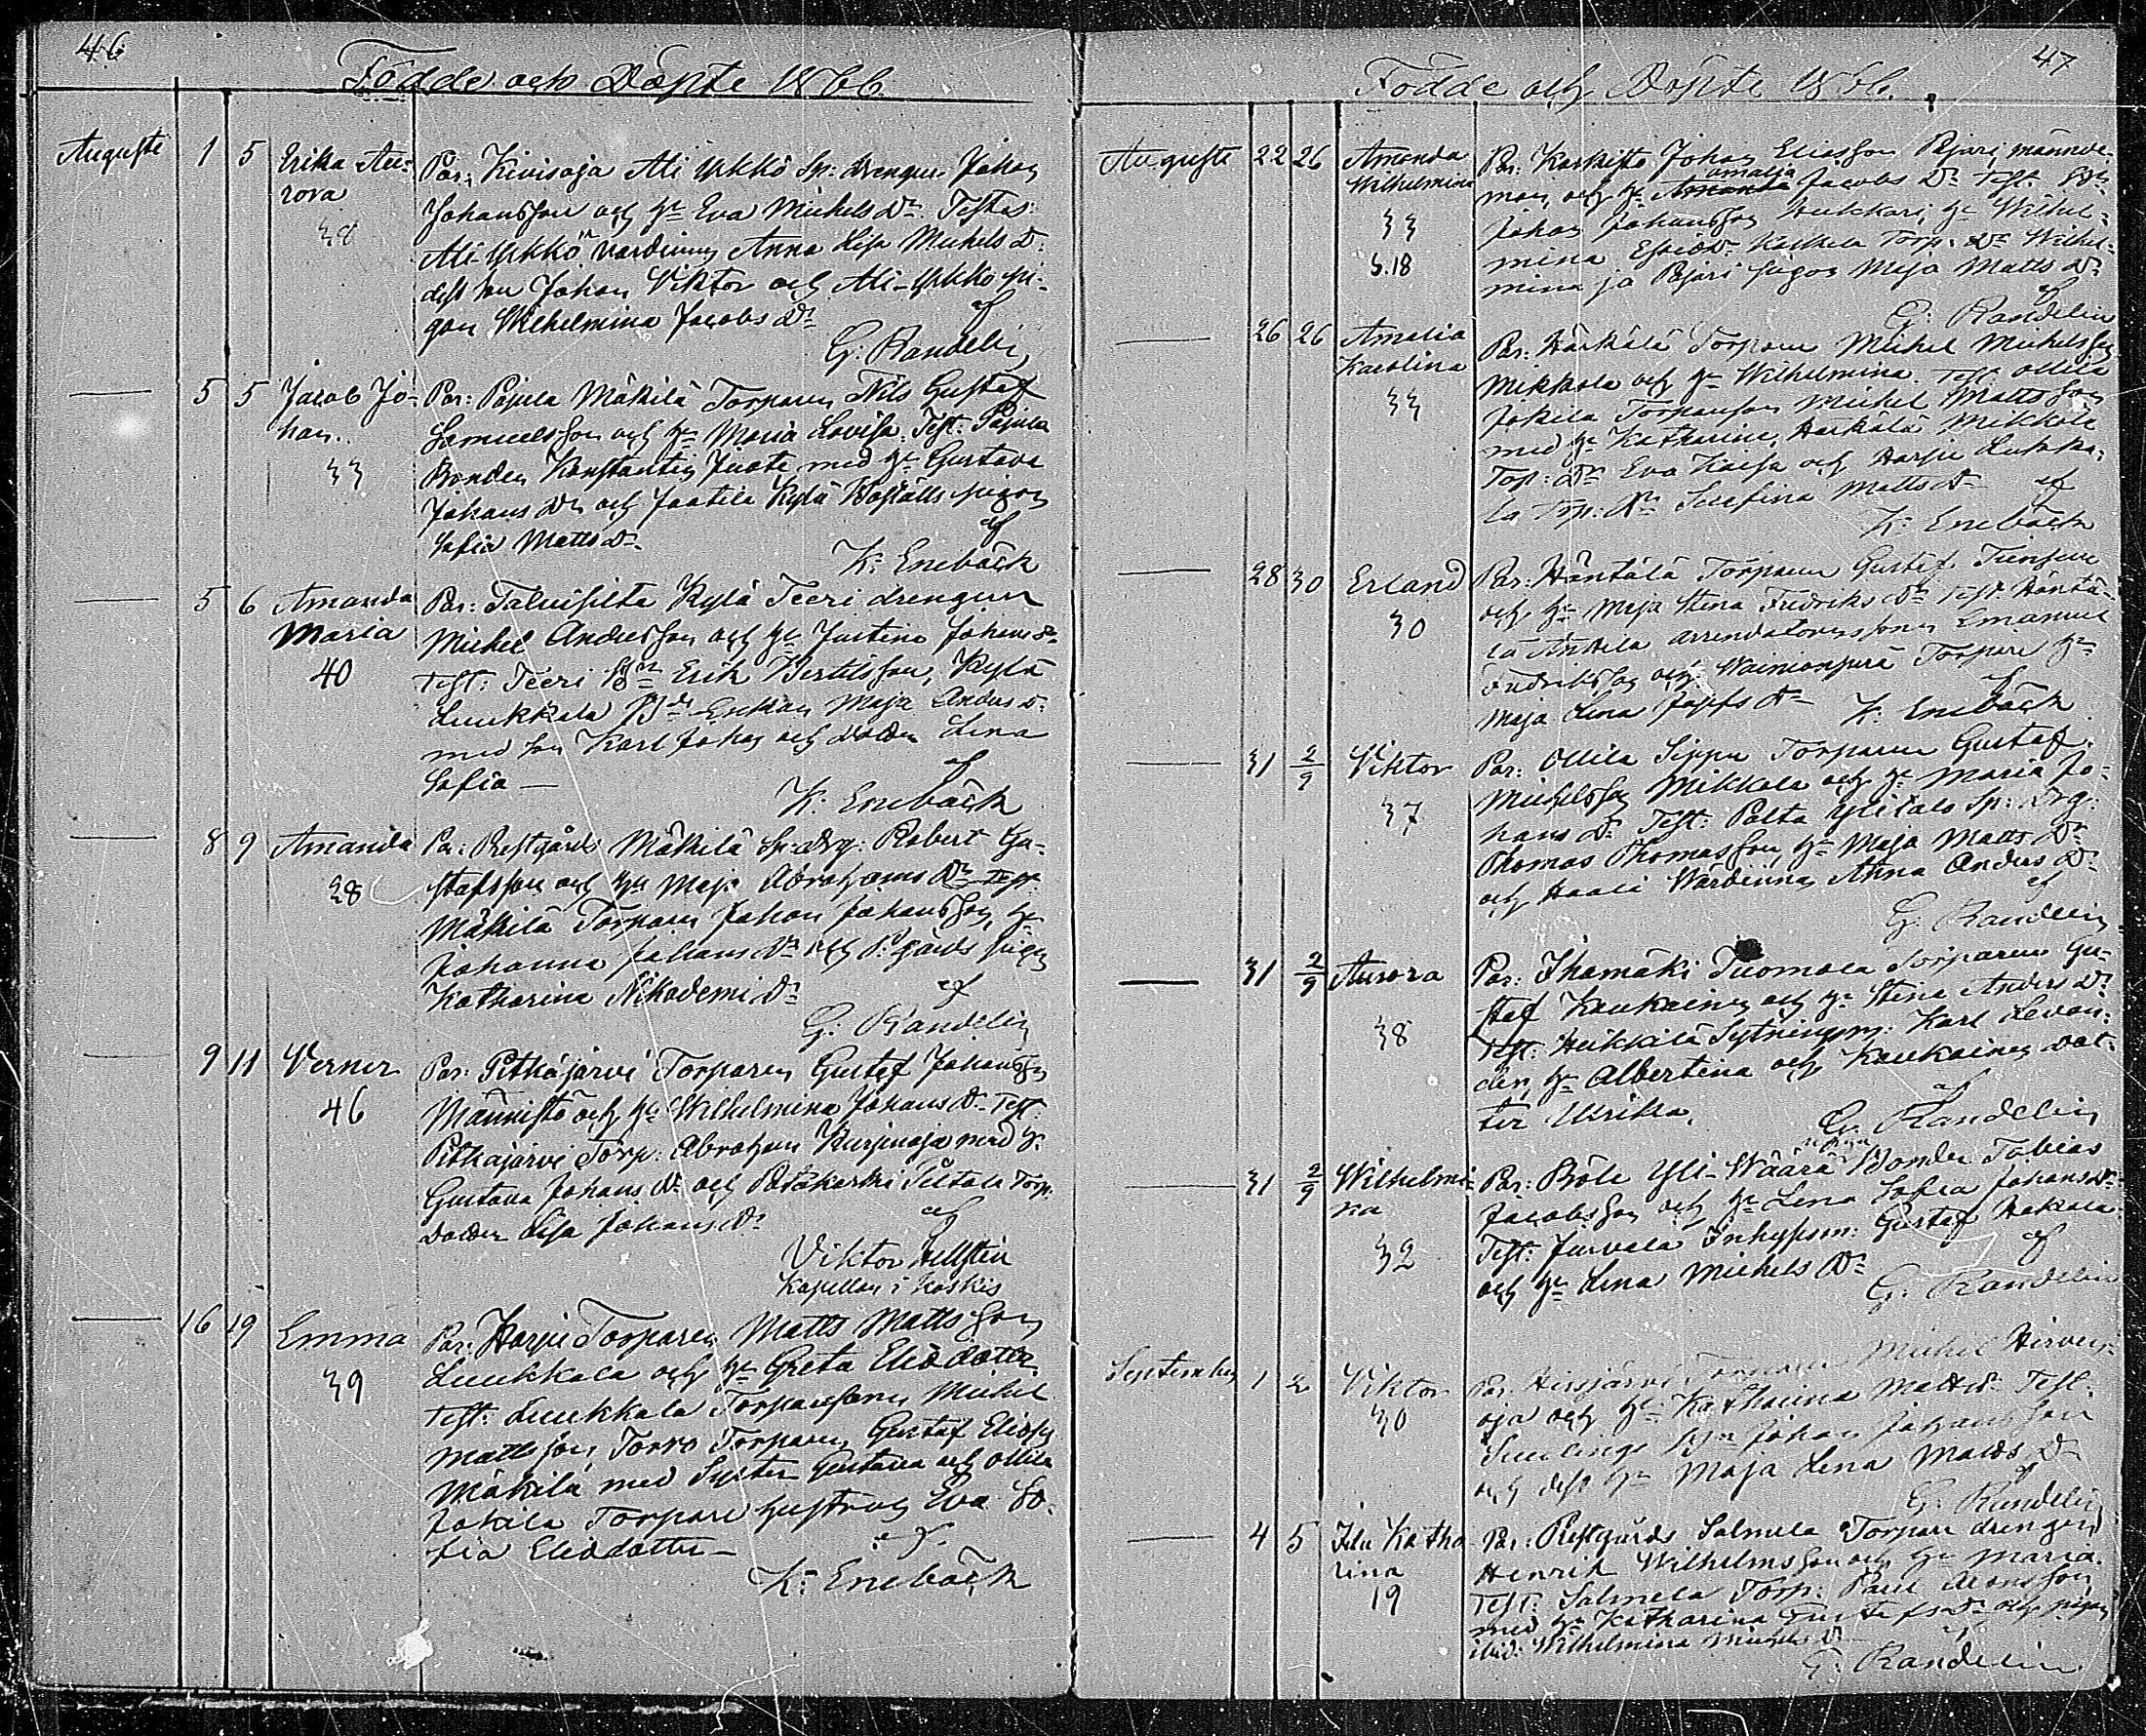 46
Födde och Döpte 1866
Augusti 1 5 Erika Au-
rora
38
Par: Kivioja Ali Ykkö Sp: drengen Johan
Johansson och h: Eva Michels Dr. Testes:
Ali Ykkö värdinnan Anna Lisa Michels D:
dess son Johan Viktor och Ali-Ykkö pi-
gan Wilhelmina Jacobs Dr
af
G: Randelin
5 5 Jacob Jo-
han
33
Par: Pajula Mäkilä Torparen Nils Gustaf
Samuelsson och h: Maria Lovisa. Test: Pajula
Bonden Konstantin Juote med h: Gustava
Johans Dr och Jaatila Kylä pigan
Sofia Matts Dr
af
K: Enebäck
5 6 Amanda
Maria
40
Par: Talvisilta Kylä Teeri drengen
Michel Andersson och h: Justina Johans Dr
Test: Teeri Erik Bertilsson, Kylä
Luukkala Enkan Maja Anders D:
med son Karl Johan och Dotter Lena
Sofia —
af
K: Enebäck
8 9 Amanda
38
Par: Prestgårds Mäkilä Sp: drg: Robert Gu-
stafsson och h: Maja Abrahams Dr Test
Mäkilä Torparen Johan Johansson, h:
Johanna Johans Dr och P:gårds pigan
Katharina Nikodemi Dr
af
G: Randelin
9 11 Verner
46
Par: Pitkäjärvi Torparen Gustaf Johansson
Männistö och h: Wilhelmina Johans Dr Test:
Pitkäjärvi Torp: Abraham Kurjenoja med h:
Gustava Johans Dr och Torp:
Dotter Lisa Johans Dr
af
Viktor Hellsten
Kapellan i Koskis
16 19 Emma
39
Par: Harju Torparen Matts Mattsson
Luukkala och h: Greta Eliædotter
Test: Luukkala Torparesonen Michel
Mattsson, Torro Torparen Gustaf Eliæson
Mäkilä med Syster Gustava och Ollila
Jokila Torpare hustrun Eva So-
fia Eliædotter —
af
K: Enebäck
47
Födde och Döpte 1866.
Augusti 22 26 Amanda
Wilhelmina
33
S.18
Par: Karkisto Johan Eliasson Pajari,
man och h: amalia Jacobs Dr Test.
Johan Johansson Heikkari, h: Wilhel-
mina Torp: Dr Wilhel-
mina ja Pajari pigan Maja Matts Dr
af
G: Randelin
26 26 Amalia
Karolina
33
Par: Härkälä Torparen Michel Michelsson
Mikkola och h: Wilhelmina. Test: Ollila
Jokila Torparson Michel Mattsson
med h: Katharina, Härkälä Mikkola
Torp: Dr Eva Kaisa och Harju Lukka-
la Torp: Dr Serfina Matts Dr
af
K: Enebäck
28 30 Erland
30
Par: Häntälä Torparen Gustaf
och h: Maja Stina Fredriks Dr Test Häntä-
lä Anttila arrendatorssonen Emanuel
Fredriksson och Torpare h:
Maja Lena Josefs Dr
af
K: Enebäck
31 2/9 Viktor
37
Par: Ollila Seppä Torparen Gustaf
Michelsson Mikkola och h: Maria Jo-
hans Dr Test: Palta Ylitalo Sp: drg:
Thomas Thomasson, h: Maja Matts Dr
och Haali Wärdinnan Anna Anders Dr
af
G: Randelin
31 2/9 Aurora
38
Par: Ihamäki Tuomola Torparen Gu-
staf Kaukainen och h: Stina Anders Dr
Test: Heikkilä Sytningsm: Karl Levan-
der, h: Albertina och Kaukainen Dot-
ter Ulrika.
af
G: Randelin
31 2/9 Wilhelmi-
na
32
Par: Böle Yli-Wäärä Bonden Tobias
Jacobsson och h: Lena Sofia Johans Dr
Test: Jurvala Inhysesm: Gustaf Hakala
och h: Lena Michels Dr
af
G: Randelin
September 1 2 Viktor
30
Par: Hirsjärvi Torparen Michel Hirven-
oja och h: Katharina Matts Dr Test:
Johan Johansson
och dess h: Maja Lena Matts Dr
af
G: Randelin
4 5 Ida Katha
rina
19
Par: Prestgårds Salmela Torpare drengen
Henrik Wilhelmsson och h: Maria.
Test: Salmela Torp: Paul Aronsson
med h: Katharina Gustafs Dr och pigan
ibid: Wilhelmina Michels D
af
G: Randelin